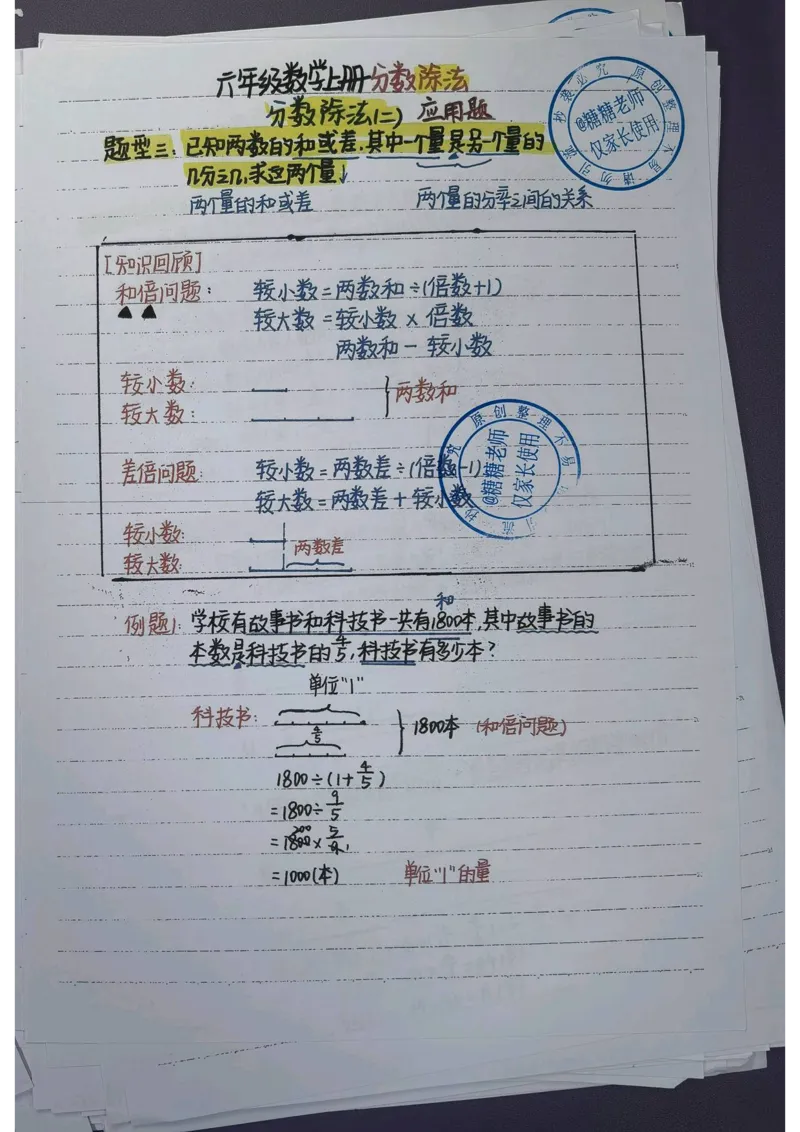 六年级数学上册分数除法
分数除法(二) 应用题
题型三:已知两数的和或差,其中一个量是另一个量的
几分之几,求这两个量。
两个量的和或差 两个量的分率之间的关系
[知识回顾]
和倍问题: 较小数=两数和÷(倍数+1)
较大数=较小数×倍数
两数和-较小数
较小数:
较大数: 两数和
差倍问题: 较小数=两数差÷(倍数-1)
较大数=两数差+较小数
较小数:
较大数: 两数差
和
例题1: 学校有故事书和科技书一共有1800本,其中故事书的
本数是科技书的4/5,科技书有多少本?
单位"1"
科技书: 1800本 (和倍问题)
4/5
1800÷(1+4/5)
=1800÷9/5
=1800×5/9
200 1
=1000(本) 单位"1"的量
@糖糖老师
仅家长使用
原创整理不易 请勿引流 抄袭必究
@糖糖老师
仅家长使用
原创整理不易